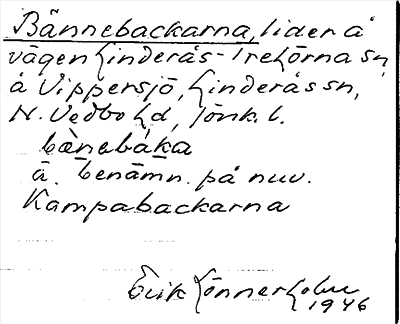 Bännebackarna, lider å
vägen Linderås - Trehörna sn,
å Vippersjö, Linderås sn,
N. Vedbo hd, Jönk. l.
bænebáka
ä. benämn. på nuv.
Kampabackarna
Erik Lönnerholm
1946